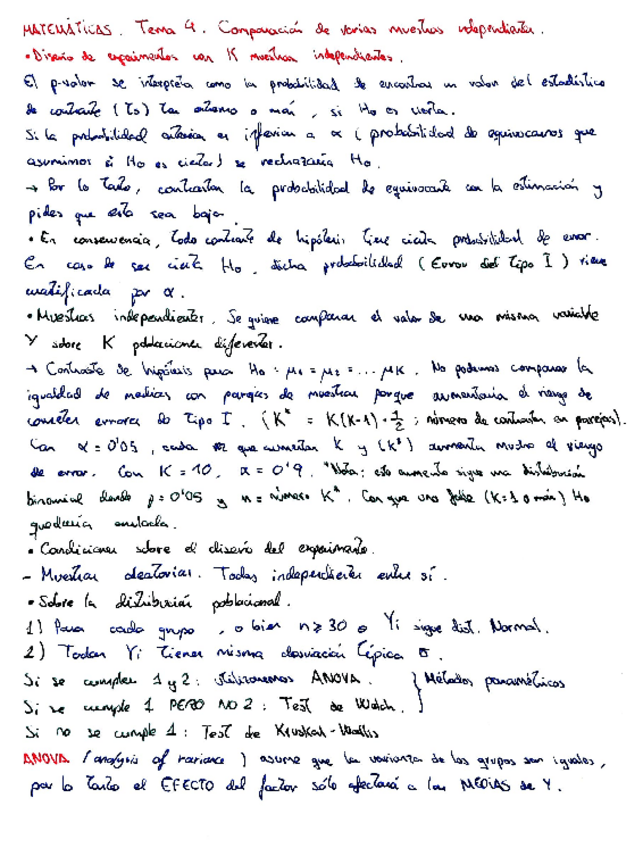 MATEMÁTICAS. Tema 4. Comparación de varias muestras independientes.
• Diseño de experimentos con K muestras independientes.
El p-valor se interpreta como la probabilidad de encontrar un valor del estadístico
de contraste (ts) tan extremo o más, si Ho es cierta.
Si la probabilidad anterior es inferior a α (probabilidad de equivocarnos que
asumimos si Ho es cierta) se rechazaría Ho.
→ Por lo tanto, contrastan la probabilidad de equivocarte con la estimación y
pides que esta sea baja.
• En consecuencia, todo contraste de hipótesis tiene cierta probabilidad de error.
En caso de ser cierta Ho, dicha probabilidad (Error del tipo I) viene
cuatificada por α.
• Muestras independientes. Se quiere comparar el valor de una misma variable
Y sobre K poblaciones diferentes.
→ Contraste de hipótesis para Ho: μ1 = μ2 = ... μK. No podemos comparar la
igualdad de medias con parejas de muestras porque aumentaría el riesgo de
cometer errores de tipo I. (K* = K(K-1)·1/2 ; número de contrastes en parejas).
Con α = 0'05, cada vez que aumentan K y (K*) aumenta mucho el riesgo
de error. Con K = 10, α = 0'9. *Nota: este aumento sigue una distribución
binomial donde p = 0'05 y n = número K*. Con que uno falle (K=1 o más) Ho
quedaría anulada.
• Condiciones sobre el diseño del experimento.
- Muestras aleatorias. Todas independientes entre sí.
• Sobre la distribución poblacional.
1) Para cada grupo, o bien n ≥ 30 o Yi sigue dist. Normal.
2) Todas Yi tienen misma desviación típica σ.
Si se cumplen 1 y 2: utilizaremos ANOVA. } Métodos paramétricos
Si se cumple 1 PERO NO 2: Test de Welch.
Si no se cumple 1: Test de Kruskal-Wallis
ANOVA (analysis of variance) asume que la varianza de los grupos son iguales,
por lo tanto el EFECTO del factor sólo afectará a las MEDIAS de Y.